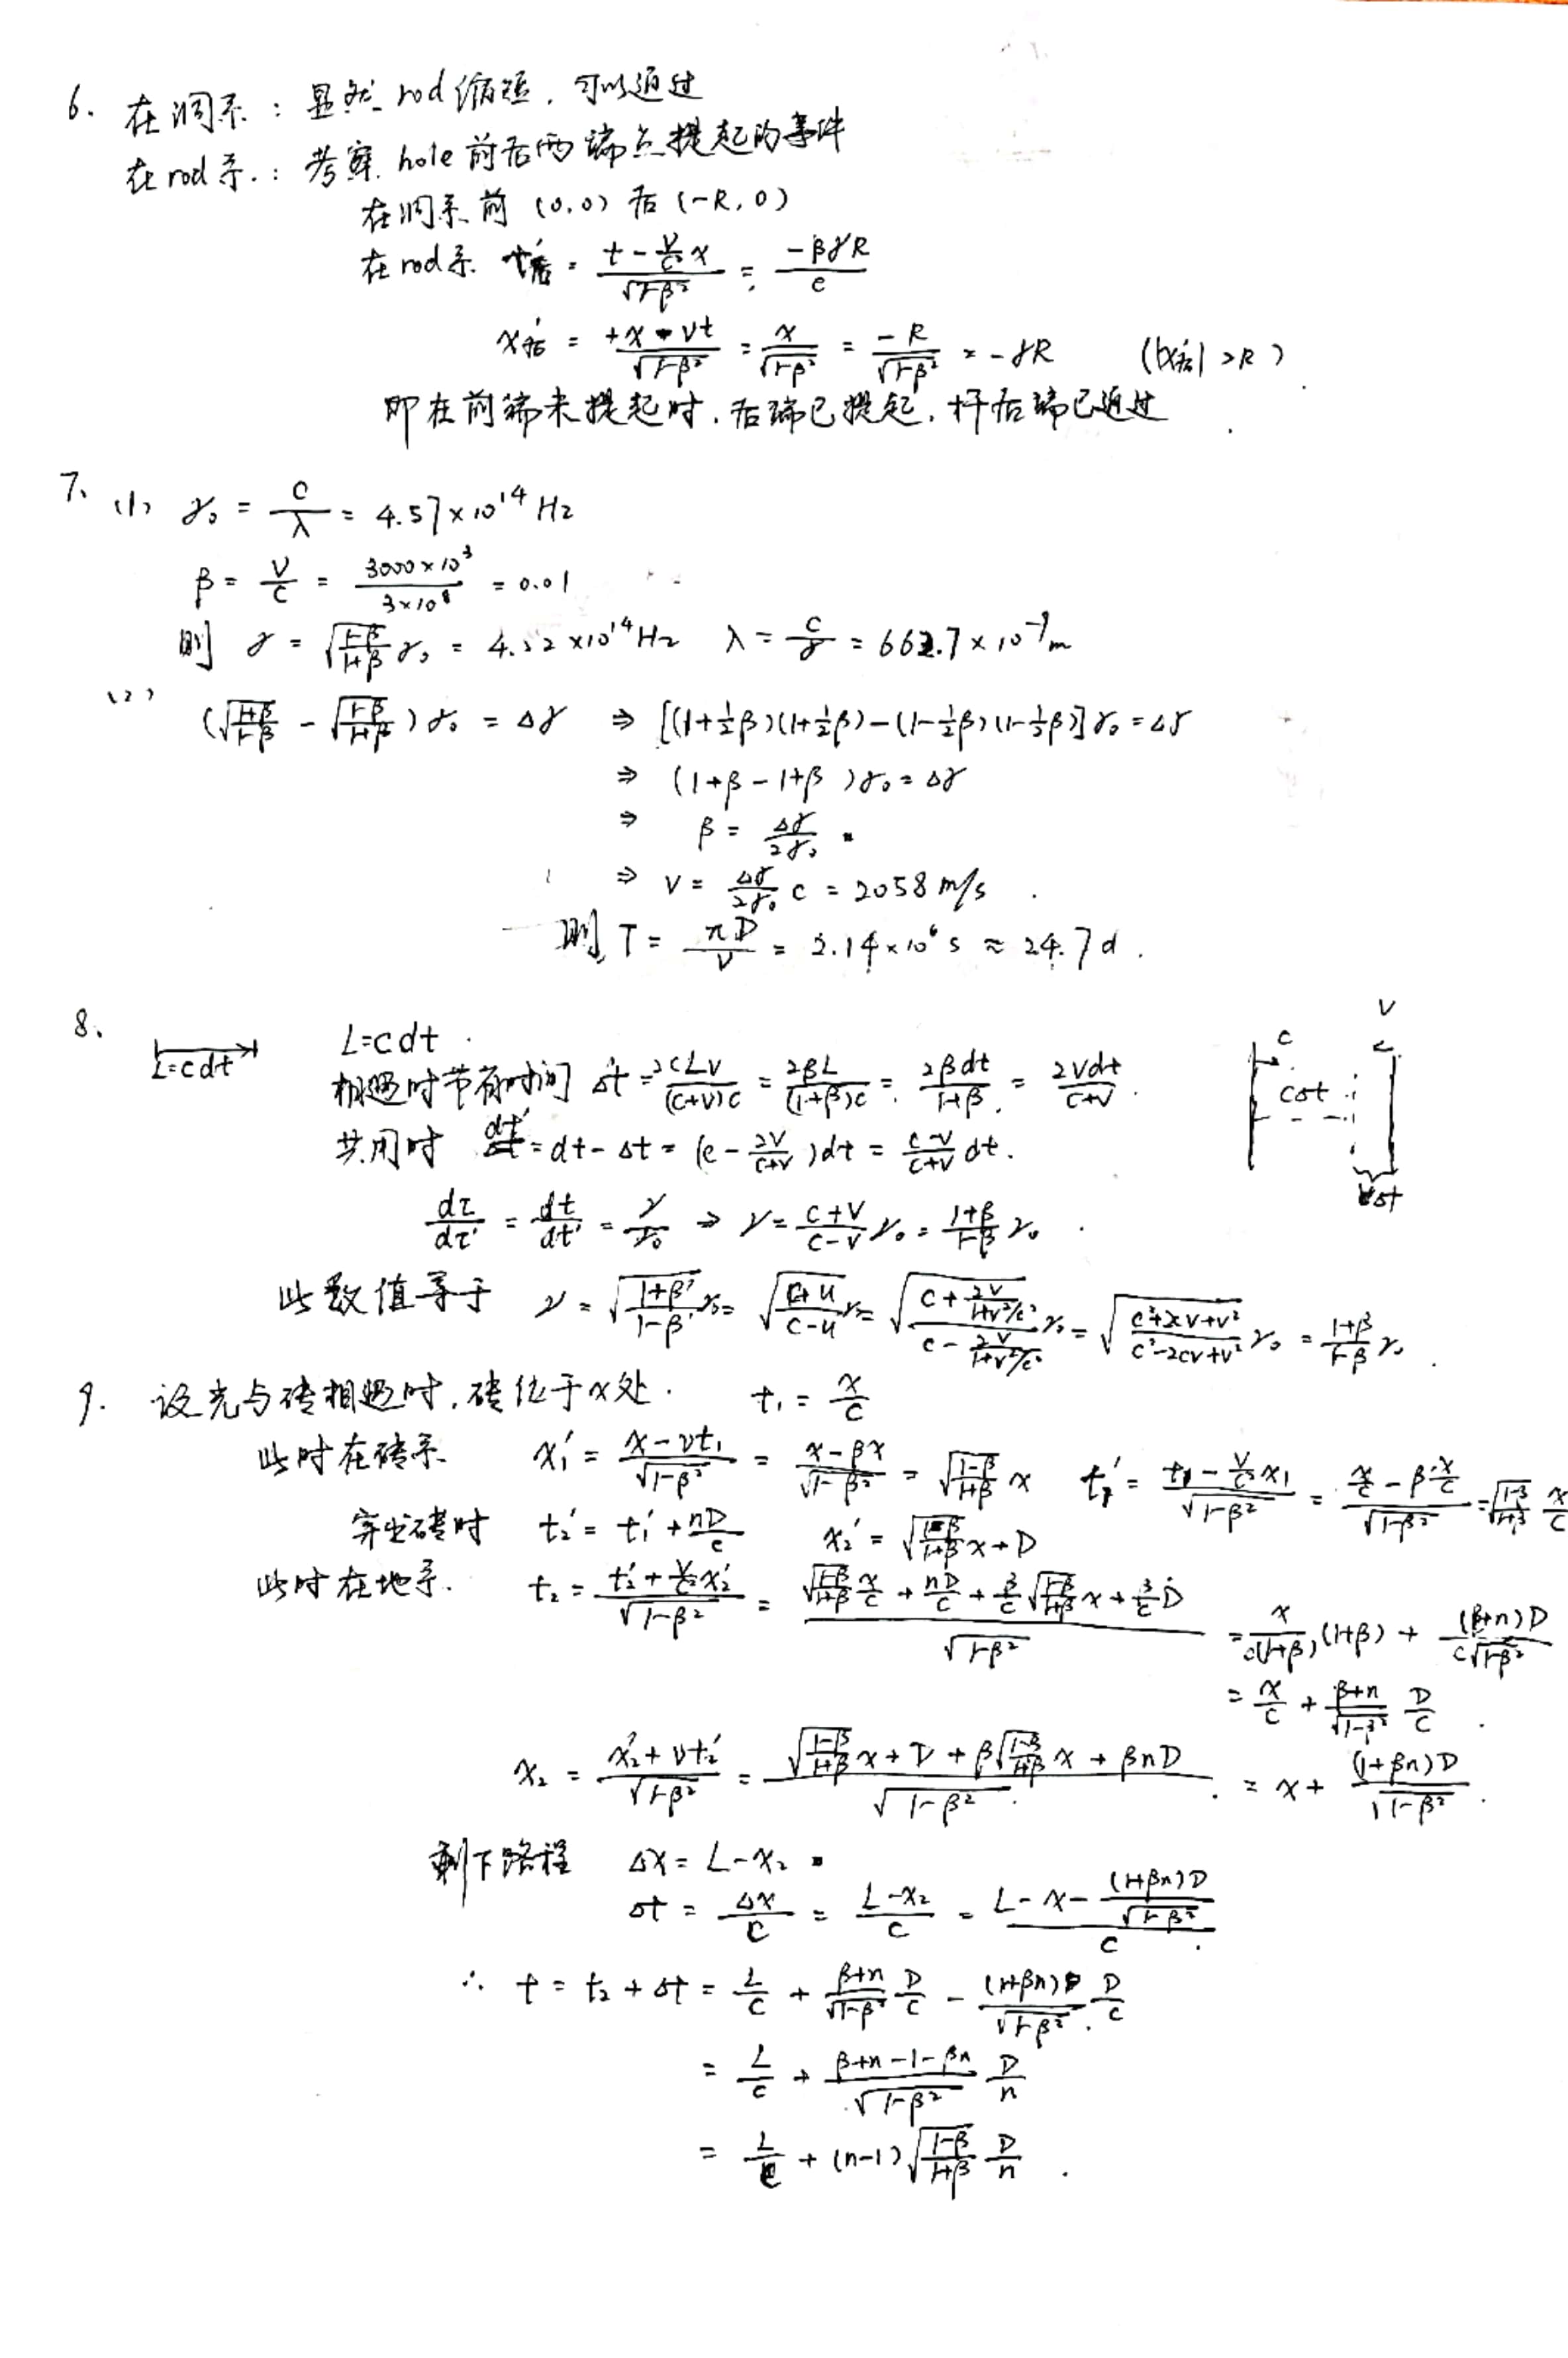 6. 在洞系: 显然 rod 缩短, 可以通过
在 rod 系.: 考察 hole 前后两端点提起的事件
在洞系 前 (0,0) 后 (-R,0)
在 rod 系 t'后 = \frac{t-\frac{v}{c^2}x}{\sqrt{1-β^2}} = \frac{-βγR}{c}
x'后 = \frac{+x-vt}{\sqrt{1-β^2}} = \frac{x}{\sqrt{1-β^2}} = \frac{-R}{\sqrt{1-β^2}} = -γR (|x'后| >R)
即在前端未提起时, 后端已提起, 杆后端已通过.
7. (1) γ_0 = \frac{c}{λ} = 4.57×10^{14} Hz
β = \frac{v}{c} = \frac{3000×10^3}{3×10^8} = 0.01
则 γ = \sqrt{\frac{1-β}{1+β}}γ_0 = 4.52×10^{14}Hz λ = \frac{c}{γ} = 662.7×10^{-9}m
(2) (\sqrt{\frac{1+β}{1-β}} - \sqrt{\frac{1-β}{1+β}})γ_0 = Δγ ⇒ [(1+\frac{1}{2}β)(1+\frac{1}{2}β)-(1-\frac{1}{2}β)(1-\frac{1}{2}β)]γ_0 = Δγ
⇒ (1+β-1+β)γ_0 = Δγ
⇒ β = \frac{Δγ}{2γ_0}
⇒ v = \frac{Δγ}{2γ_0} c = 2058 m/s.
则 T = \frac{πD}{v} = 2.14×10^6 s ≈ 24.7 d.
8. L=cdt L=cdt.
相遇时节省时间 Δt = \frac{2cLv}{(c+v)c} = \frac{2βL}{(1+β)c} = \frac{2βdt}{1+β} = \frac{2vdt}{c+v}.
v
c
cΔt
vΔt
共用时 dt' = dt-Δt = (c-\frac{2v}{c+v})dt = \frac{c-v}{c+v}dt.
\frac{dτ}{dτ'} = \frac{dt}{dt'} = \frac{ν}{ν_0} ⇒ ν = \frac{c+v}{c-v}ν_0 = \frac{1+β}{1-β}ν_0.
此数值等于 ν = \sqrt{\frac{1+β'}{1-β'}}ν_0 = \sqrt{\frac{c+u}{c-u}}ν_0 = \sqrt{\frac{c+\frac{2v}{1+v^2/c^2}}{c-\frac{2v}{1+v^2/c^2}}}ν_0 = \sqrt{\frac{c^2+2cv+v^2}{c^2-2cv+v^2}}ν_0 = \frac{1+β}{1-β}ν_0.
9. 设光与砖相遇时, 砖位于x处. t_1 = \frac{x}{c}
此时在砖系 x_1' = \frac{x-vt_1}{\sqrt{1-β^2}} = \frac{x-βx}{\sqrt{1-β^2}} = \sqrt{\frac{1-β}{1+β}}x t_1' = \frac{t_1-\frac{v}{c^2}x_1}{\sqrt{1-β^2}} = \frac{\frac{x}{c}-β\frac{x}{c}}{\sqrt{1-β^2}} = \sqrt{\frac{1-β}{1+β}}\frac{x}{c}
穿出砖时 t_2' = t_1' + \frac{nD}{c} x_2' = \sqrt{\frac{1-β}{1+β}}x+D
此时在地系. t_2 = \frac{t_2'+\frac{v}{c^2}x_2'}{\sqrt{1-β^2}} = \frac{\sqrt{\frac{1-β}{1+β}}\frac{x}{c}+\frac{nD}{c}+\frac{β}{c}\sqrt{\frac{1-β}{1+β}}x+\frac{β}{c}D}{\sqrt{1-β^2}} = \frac{x}{c(1+β)}(1+β) + \frac{(β+n)D}{c\sqrt{1-β^2}}
= \frac{x}{c} + \frac{β+n}{\sqrt{1-β^2}}\frac{D}{c}.
x_2 = \frac{x_2'+vt_2'}{\sqrt{1-β^2}} = \frac{\sqrt{\frac{1-β}{1+β}}x+D+β\sqrt{\frac{1-β}{1+β}}x+βnD}{\sqrt{1-β^2}} = x+\frac{(1+βn)D}{\sqrt{1-β^2}}.
剩下路程 Δx = L-x_2
Δt = \frac{Δx}{c} = \frac{L-x_2}{c} = \frac{L-x-\frac{(1+βn)D}{\sqrt{1-β^2}}}{c}.
∴ t = t_2+Δt = \frac{L}{c} + \frac{β+n}{\sqrt{1-β^2}}\frac{D}{c} - \frac{(1+βn)}{\sqrt{1-β^2}}\frac{D}{c}
= \frac{L}{c} + \frac{β+n-1-βn}{\sqrt{1-β^2}}\frac{D}{n}
= \frac{L}{c} + (n-1)\sqrt{\frac{1-β}{1+β}}\frac{D}{n}.